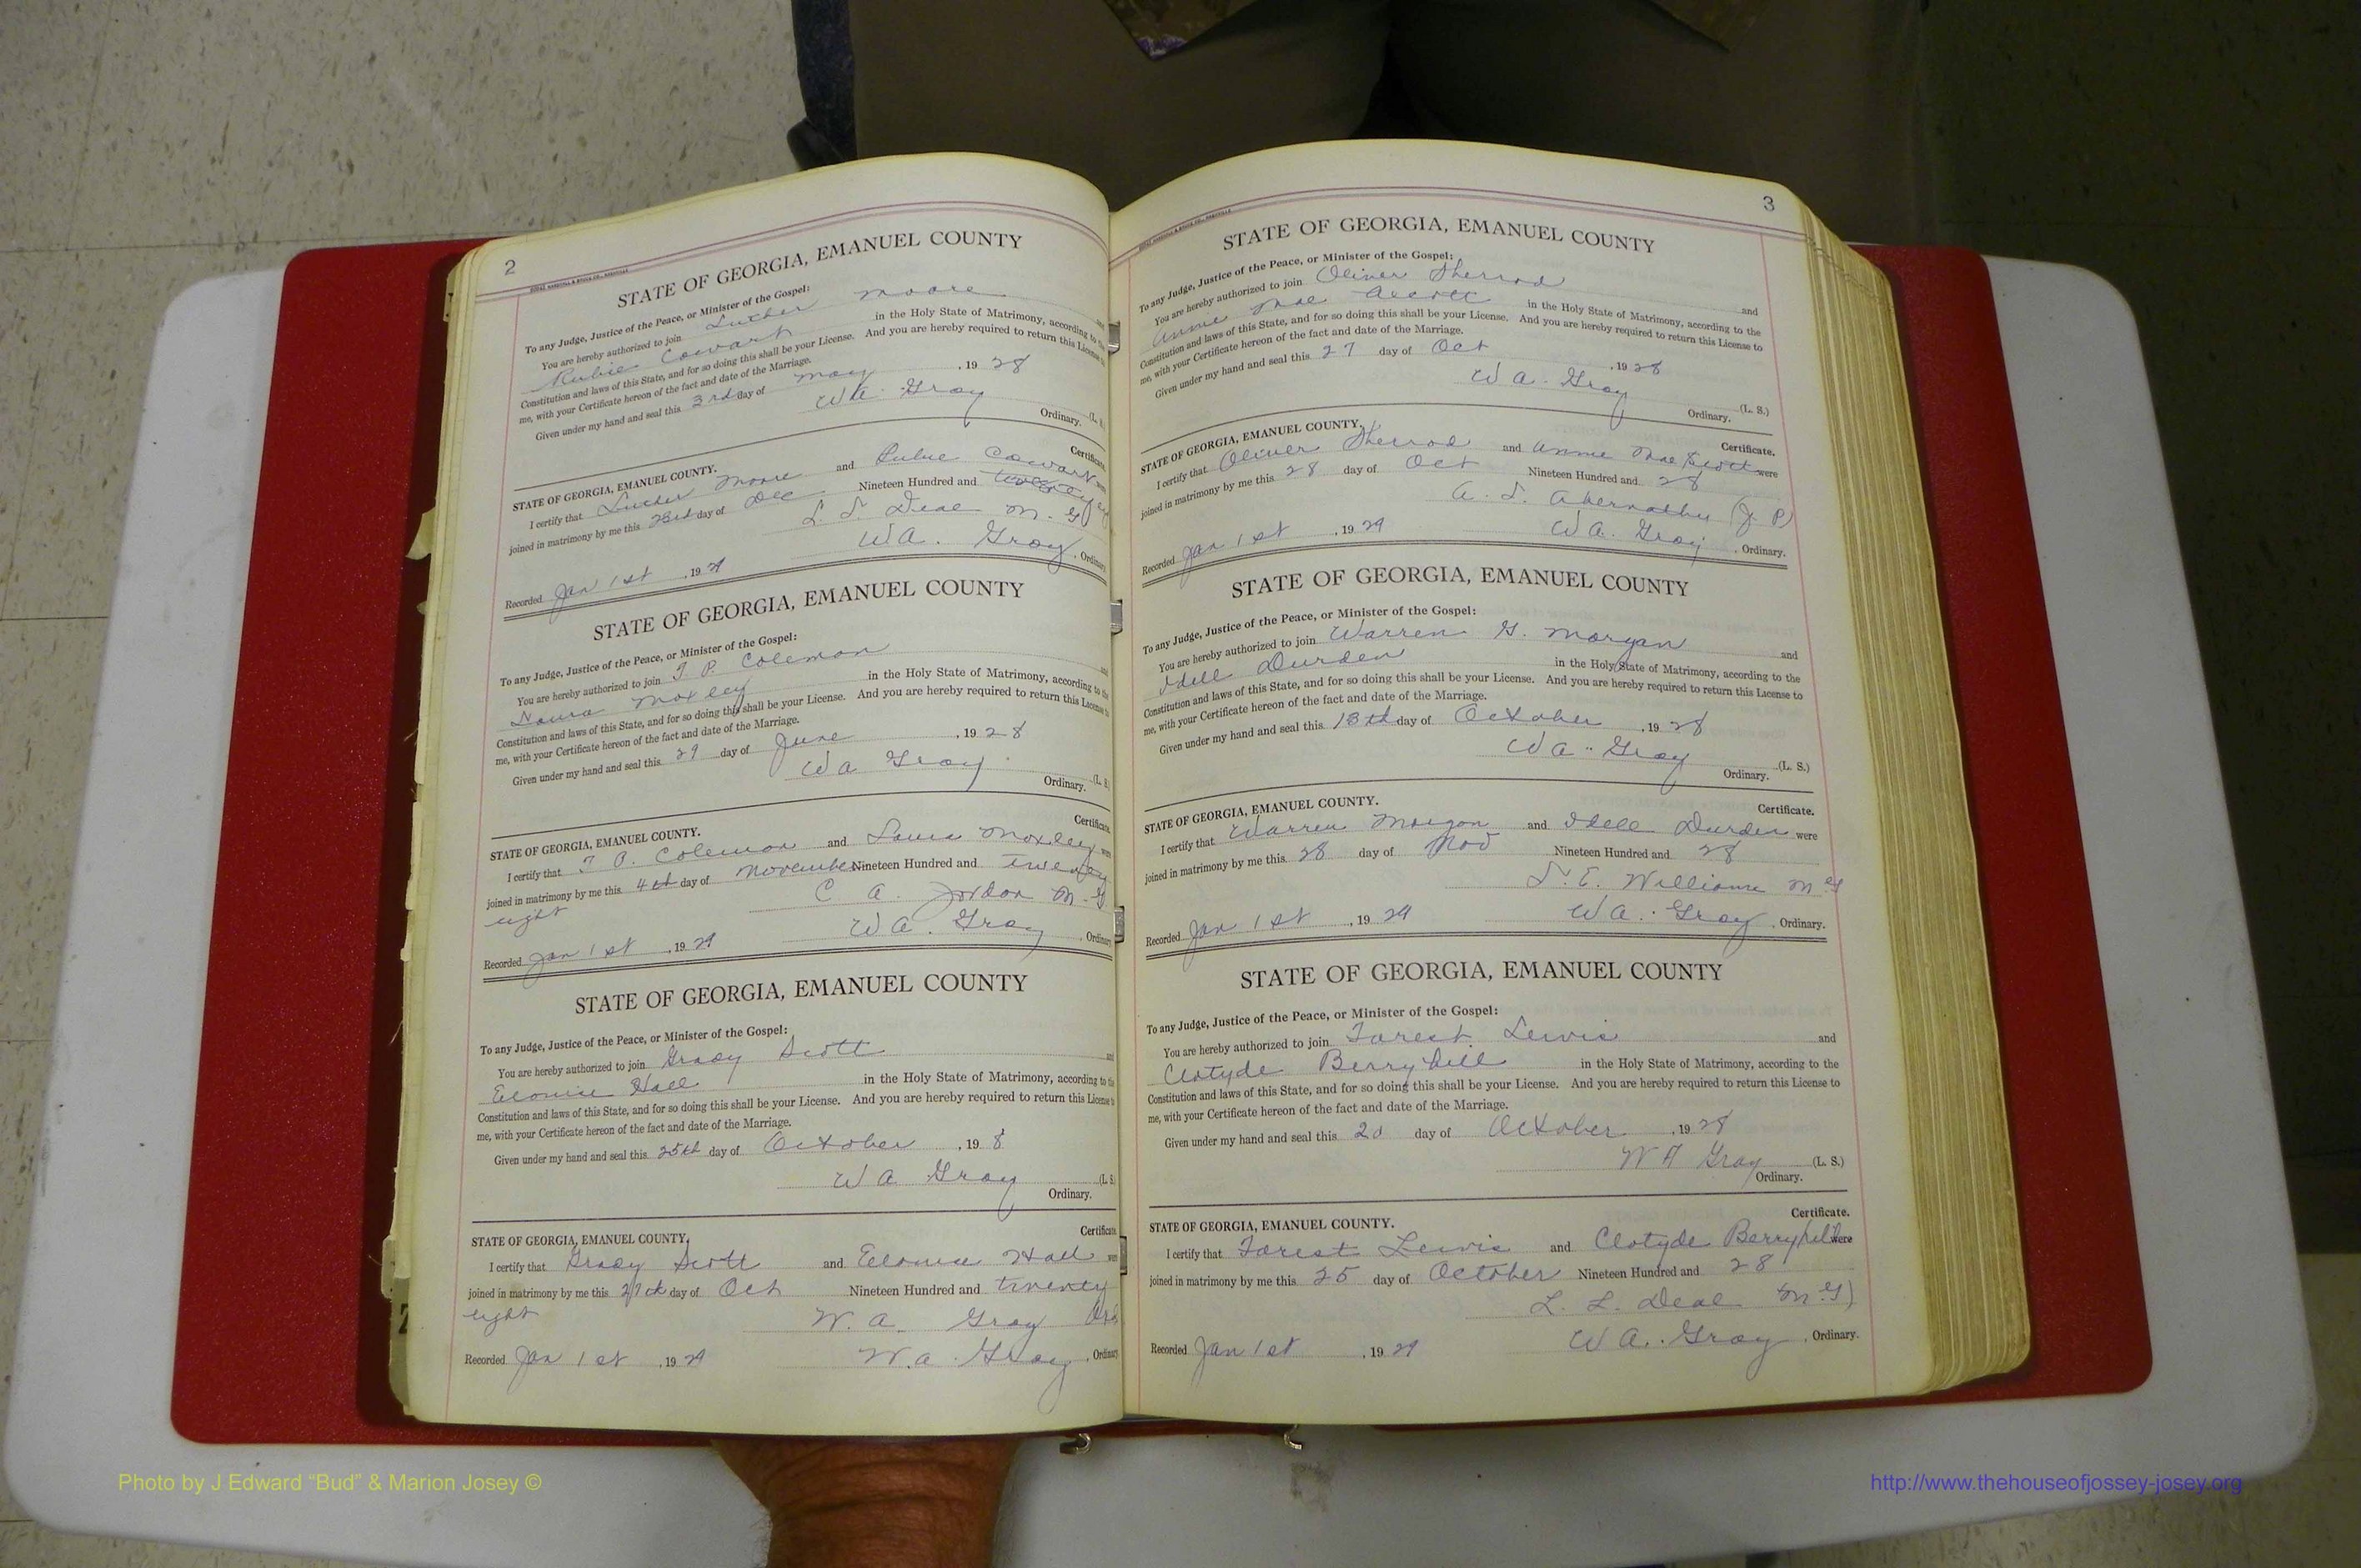 2
STATE OF GEORGIA, EMANUEL COUNTY
To any Judge, Justice of the Peace, or Minister of the Gospel:
You are hereby authorized to join Luther Moore and
Rubie Cowart in the Holy State of Matrimony, according to the
Constitution and laws of this State, and for so doing this shall be your License. And you are hereby required to return this License to
me, with your Certificate hereon of the fact and date of the Marriage.
Given under my hand and seal this 3rd day of May , 19 28
W A. Gray (L. S.
Ordinary.
STATE OF GEORGIA, EMANUEL COUNTY. Certificate.
I certify that Luther Moore and Rubie Cowart were
joined in matrimony by me this 23rd day of Dec Nineteen Hundred and
L. L. Deal M. G
Recorded Jan 1st , 19 29 W A. Gray , Ordinary
STATE OF GEORGIA, EMANUEL COUNTY
To any Judge, Justice of the Peace, or Minister of the Gospel:
You are hereby authorized to join P. Coleman and
Laura Moxley in the Holy State of Matrimony, according to the
Constitution and laws of this State, and for so doing this shall be your License. And you are hereby required to return this License to
me, with your Certificate hereon of the fact and date of the Marriage.
Given under my hand and seal this 29 day of June , 19 28
W A Gray (L. S
Ordinary.
STATE OF GEORGIA, EMANUEL COUNTY. Certificate.
I certify that Coleman and Laura Moxley were
joined in matrimony by me this 4th day of November Nineteen Hundred and twenty
eight C A. Jordon M. G
Recorded Jan 1st , 19 29 W A. Gray , Ordinary
STATE OF GEORGIA, EMANUEL COUNTY
To any Judge, Justice of the Peace, or Minister of the Gospel:
You are hereby authorized to join Grady Scott and
Hall in the Holy State of Matrimony, according to the
Constitution and laws of this State, and for so doing this shall be your License. And you are hereby required to return this License to
me, with your Certificate hereon of the fact and date of the Marriage.
Given under my hand and seal this 25th day of October , 19 8
W A Gray (L. S
Ordinary.
Certificate
STATE OF GEORGIA, EMANUEL COUNTY.
I certify that Grady Scott and Hall were
joined in matrimony by me this day of Oct Nineteen Hundred and twenty
eight W. A. Gray Ord
Recorded Jan 1st , 19 29 W. A. Gray , Ordinary
3
STATE OF GEORGIA, EMANUEL COUNTY
To any Judge, Justice of the Peace, or Minister of the Gospel:
You are hereby authorized to join Oliver Sherrod and
Annie Mae in the Holy State of Matrimony, according to the
Constitution and laws of this State, and for so doing this shall be your License. And you are hereby required to return this License to
me, with your Certificate hereon of the fact and date of the Marriage.
Given under my hand and seal this 27 day of Oct , 19 28
W A. Gray (L. S.)
Ordinary.
STATE OF GEORGIA, EMANUEL COUNTY. Certificate.
I certify that Oliver Sherrod and Annie Mae Scott were
joined in matrimony by me this 28 day of Oct Nineteen Hundred and 28
A. L. Abernathy (J. P)
Recorded Jan 1st , 19 29 W A. Gray , Ordinary.
STATE OF GEORGIA, EMANUEL COUNTY
To any Judge, Justice of the Peace, or Minister of the Gospel:
You are hereby authorized to join Warren G. Morgan and
Idell Durden in the Holy State of Matrimony, according to the
Constitution and laws of this State, and for so doing this shall be your License. And you are hereby required to return this License to
me, with your Certificate hereon of the fact and date of the Marriage.
Given under my hand and seal this 13th day of October , 19 28
W A. Gray (L. S.)
Ordinary.
STATE OF GEORGIA, EMANUEL COUNTY. Certificate.
I certify that Warren Morgan and Idell Durden were
joined in matrimony by me this 28 day of Nov Nineteen Hundred and 28
E. Williams M G
Recorded Jan 1st , 19 29 W A. Gray , Ordinary.
STATE OF GEORGIA, EMANUEL COUNTY
To any Judge, Justice of the Peace, or Minister of the Gospel:
You are hereby authorized to join Forest Lewis and
Clotyde Berryhill in the Holy State of Matrimony, according to the
Constitution and laws of this State, and for so doing this shall be your License. And you are hereby required to return this License to
me, with your Certificate hereon of the fact and date of the Marriage.
Given under my hand and seal this 20 day of October , 19 28
W A Gray (L. S.)
Ordinary.
Certificate.
STATE OF GEORGIA, EMANUEL COUNTY.
I certify that Forest Lewis and Clotyde Berryhill were
joined in matrimony by me this 25 day of October Nineteen Hundred and 28
L. L. Deal M. G)
Recorded Jan 1st , 19 29 W A. Gray , Ordinary.
Photo by J Edward “Bud” & Marion Josey ©
http://www.thehouseofjossey-josey.org